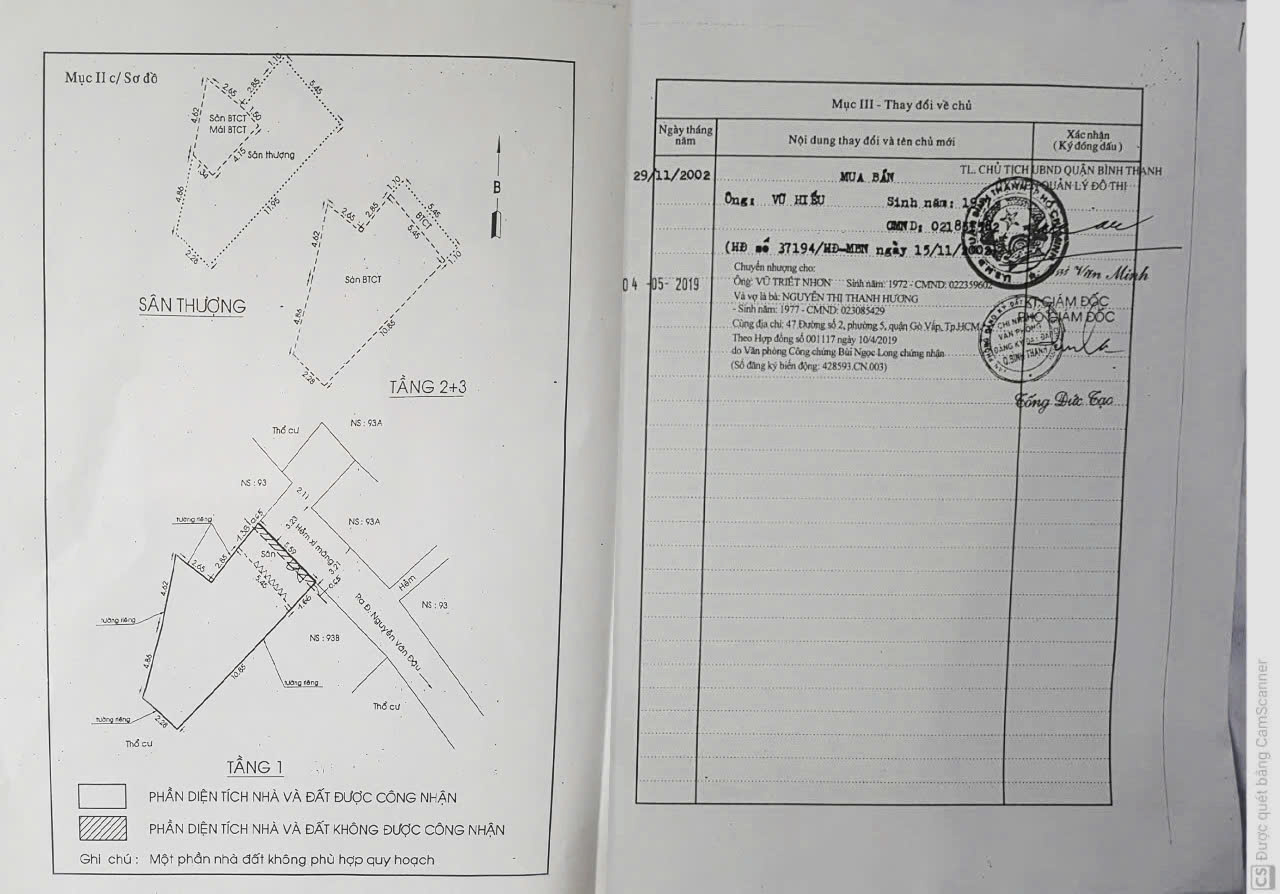 Mục II c/ Sơ đồ
1.10
2.65
2.85
5.45
4.62
1.50
Sân BTCT
Mái BTCT
4.15
Sân thượng
4.86
11.95
2.28
SÂN THƯỢNG
B
1.10
2.65
2.85
5.45
BTCT
5.45
4.62
1.10
Sân BTCT
4.86
10.85
2.28
TẦNG 2+3
Thổ cư
NS : 93A
NS : 93
2.11
tường riêng
0.65
3.23
NS : 93A
Hẻm xi măng
2.65
2.85
Sân
5.59
5.45
4.62
0.65
Hẻm
1.66
NS : 93
tường riêng
NS : 93B
Ra Đ. Nguyễn Văn Đậu
4.86
10.85
tường riêng
tường riêng
2.28
Thổ cư
Thổ cư
TẦNG 1
PHẦN DIỆN TÍCH NHÀ VÀ ĐẤT ĐƯỢC CÔNG NHẬN
PHẦN DIỆN TÍCH NHÀ VÀ ĐẤT KHÔNG ĐƯỢC CÔNG NHẬN
Ghi chú : Một phần nhà đất không phù hợp quy hoạch
Mục III - Thay đổi về chủ
Ngày tháng năm
Nội dung thay đổi và tên chủ mới
Xác nhận
( Ký đóng dấu )
TL. CHỦ TỊCH UBND QUẬN BÌNH THẠNH
QUẢN LÝ ĐÔ THỊ
29/11/2002
MUA BÁN
Ông: VŨ HIẾU Sinh năm:
CMND:
(HĐ số 37194/HĐ-MBN ngày 15/11/2002
Văn Minh
Chuyển nhượng cho:
04 -05- 2019
Ông: VŨ TRIẾT NHƠN Sinh năm: 1972 - CMND: 022359602
Và vợ là bà: NGUYỄN THỊ THANH HƯƠNG
- Sinh năm: 1977 - CMND: 023085429
Cùng địa chỉ: 47 Đường số 2, phường 5, quận Gò Vấp, Tp.HCM
Theo Hợp đồng số 001117 ngày 10/4/2019
do Văn phòng Công chứng Bùi Ngọc Long chứng nhận
(Số đăng ký biến động: 428593.CN.003)
KT.GIÁM ĐỐC
PHÓ GIÁM ĐỐC
CHI NHÁNH
VĂN PHÒNG
ĐĂNG KÝ ĐẤT ĐAI
Q.BÌNH THẠNH
Tống Đức Tạo
CS Được quét bằng CamScanner